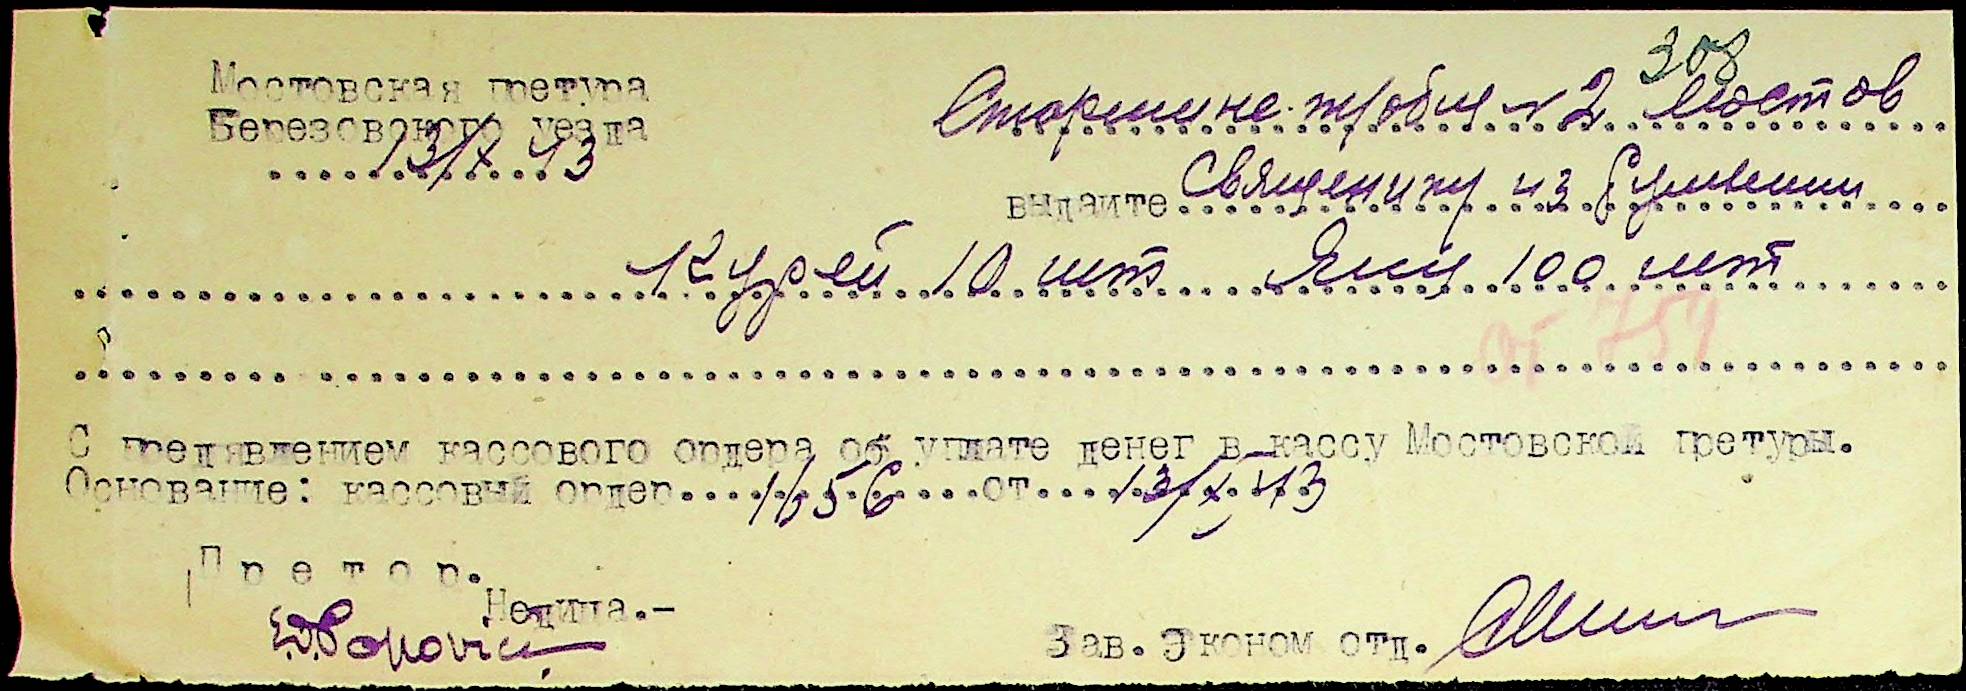 308
Мостовская претура
Березовского уезда
13/X 43
Старшине труобщ N 2 Мостов
выдайте Священику из Румынии
Курей 10 шт Яиц 100 шт
от 759
С предявлением кассового ордера об уплате денег в кассу Мостовской претуры.
Основание: кассовый ордер 1656 от 13/X 43
Претор.
Недица.-
Popovici
Зав. Эконом отд.